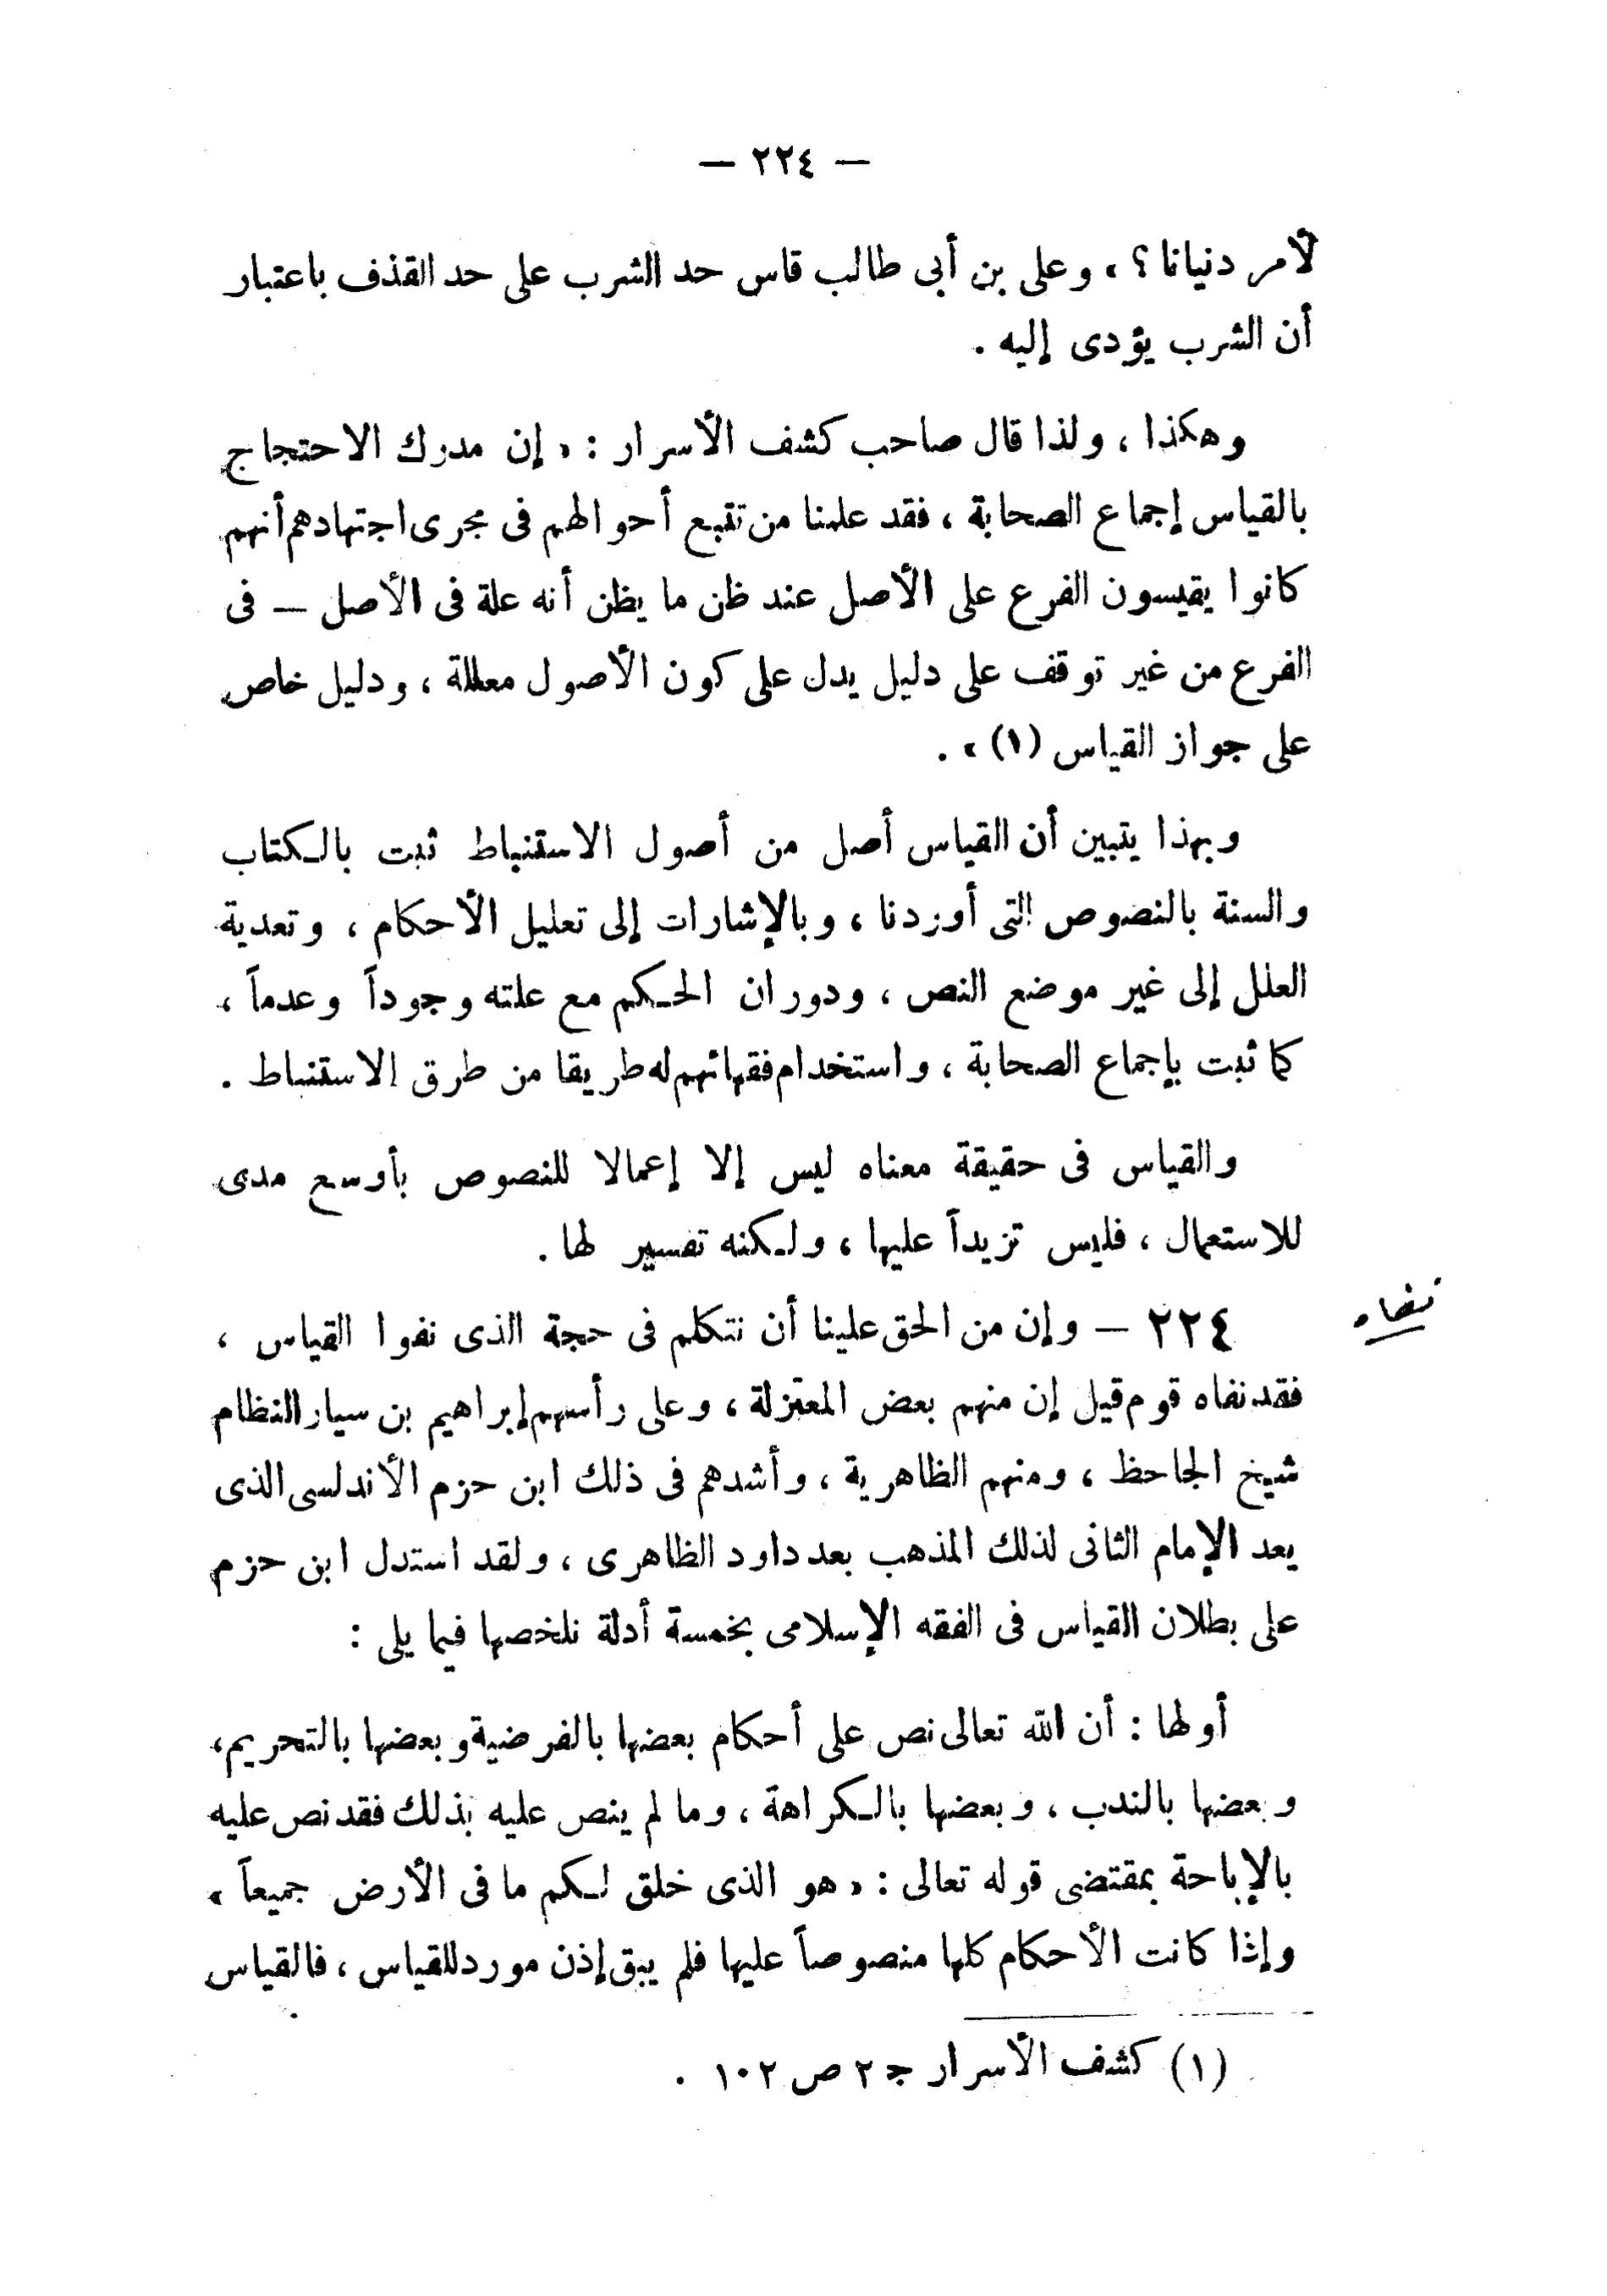 — ٢٢٤ —
لأمر دنيانا ؟ » وعلى بن أبى طالب قاس حد الشرب على حد القذف باعتبار
أن الشرب يؤدى إليه .
وهكذا ، ولذا قال صاحب كشف الأسرار : « إن مدرك الاحتجاج
بالقياس إجماع الصحابة ، فقد علمنا من تتبع أحوالهم فى مجرى اجتهادهم أنهم
كانوا يقيسون الفرع على الأصل عند ظن ما يظن أنه علة فى الأصل — فى
الفرع من غير توقف على دليل يدل على كون الأصول معللة ، ودليل خاص
على جواز القياس (١) » .
وبهذا يتبين أن القياس أصل من أصول الاستنباط ثبت بالكتاب
والسنة بالنصوص التى أوردنا ، وبالإشارات إلى تعليل الأحكام ، وتعدية
العلل إلى غير موضع النص ، ودوران الحكم مع علته وجوداً وعدماً ،
كما ثبت بإجماع الصحابة ، واستخدام فقهائهم له طريقا من طرق الاستنباط .
والقياس فى حقيقة معناه ليس إلا إعمالا للنصوص بأوسع مدى
للاستعمال ، فليس تزيداً عليها ، ولكنه تفسير لها .
نفاه
٢٢٤ — وإن من الحق علينا أن نتكلم فى حجة الذى نفوا القياس ،
فقد نفاه قوم قيل إن منهم بعض المعتزلة ، وعلى رأسهم إبراهيم بن سيار النظام
شيخ الجاحظ ، ومنهم الظاهرية ، وأشدهم فى ذلك ابن حزم الأندلسى الذى
يعد الإمام الثانى لذلك المذهب بعد داود الظاهرى ، ولقد استدل ابن حزم
على بطلان القياس فى الفقه الإسلامى بخمسة أدلة نلخصها فيما يلى :
أولها : أن الله تعالى نص على أحكام بعضها بالفرضية وبعضها بالتحريم،
وبعضها بالندب ، وبعضها بالكراهة ، وما لم ينص عليه بذلك فقد نص عليه
بالإباحة بمقتضى قوله تعالى : « هو الذى خلق لكم ما فى الأرض جميعاً »
وإذا كانت الأحكام كلها منصوصاً عليها فلم يبق إذن مورد للقياس ، فالقياس
(١) كشف الأسرار جـ ٢ ص ١٠٢ .